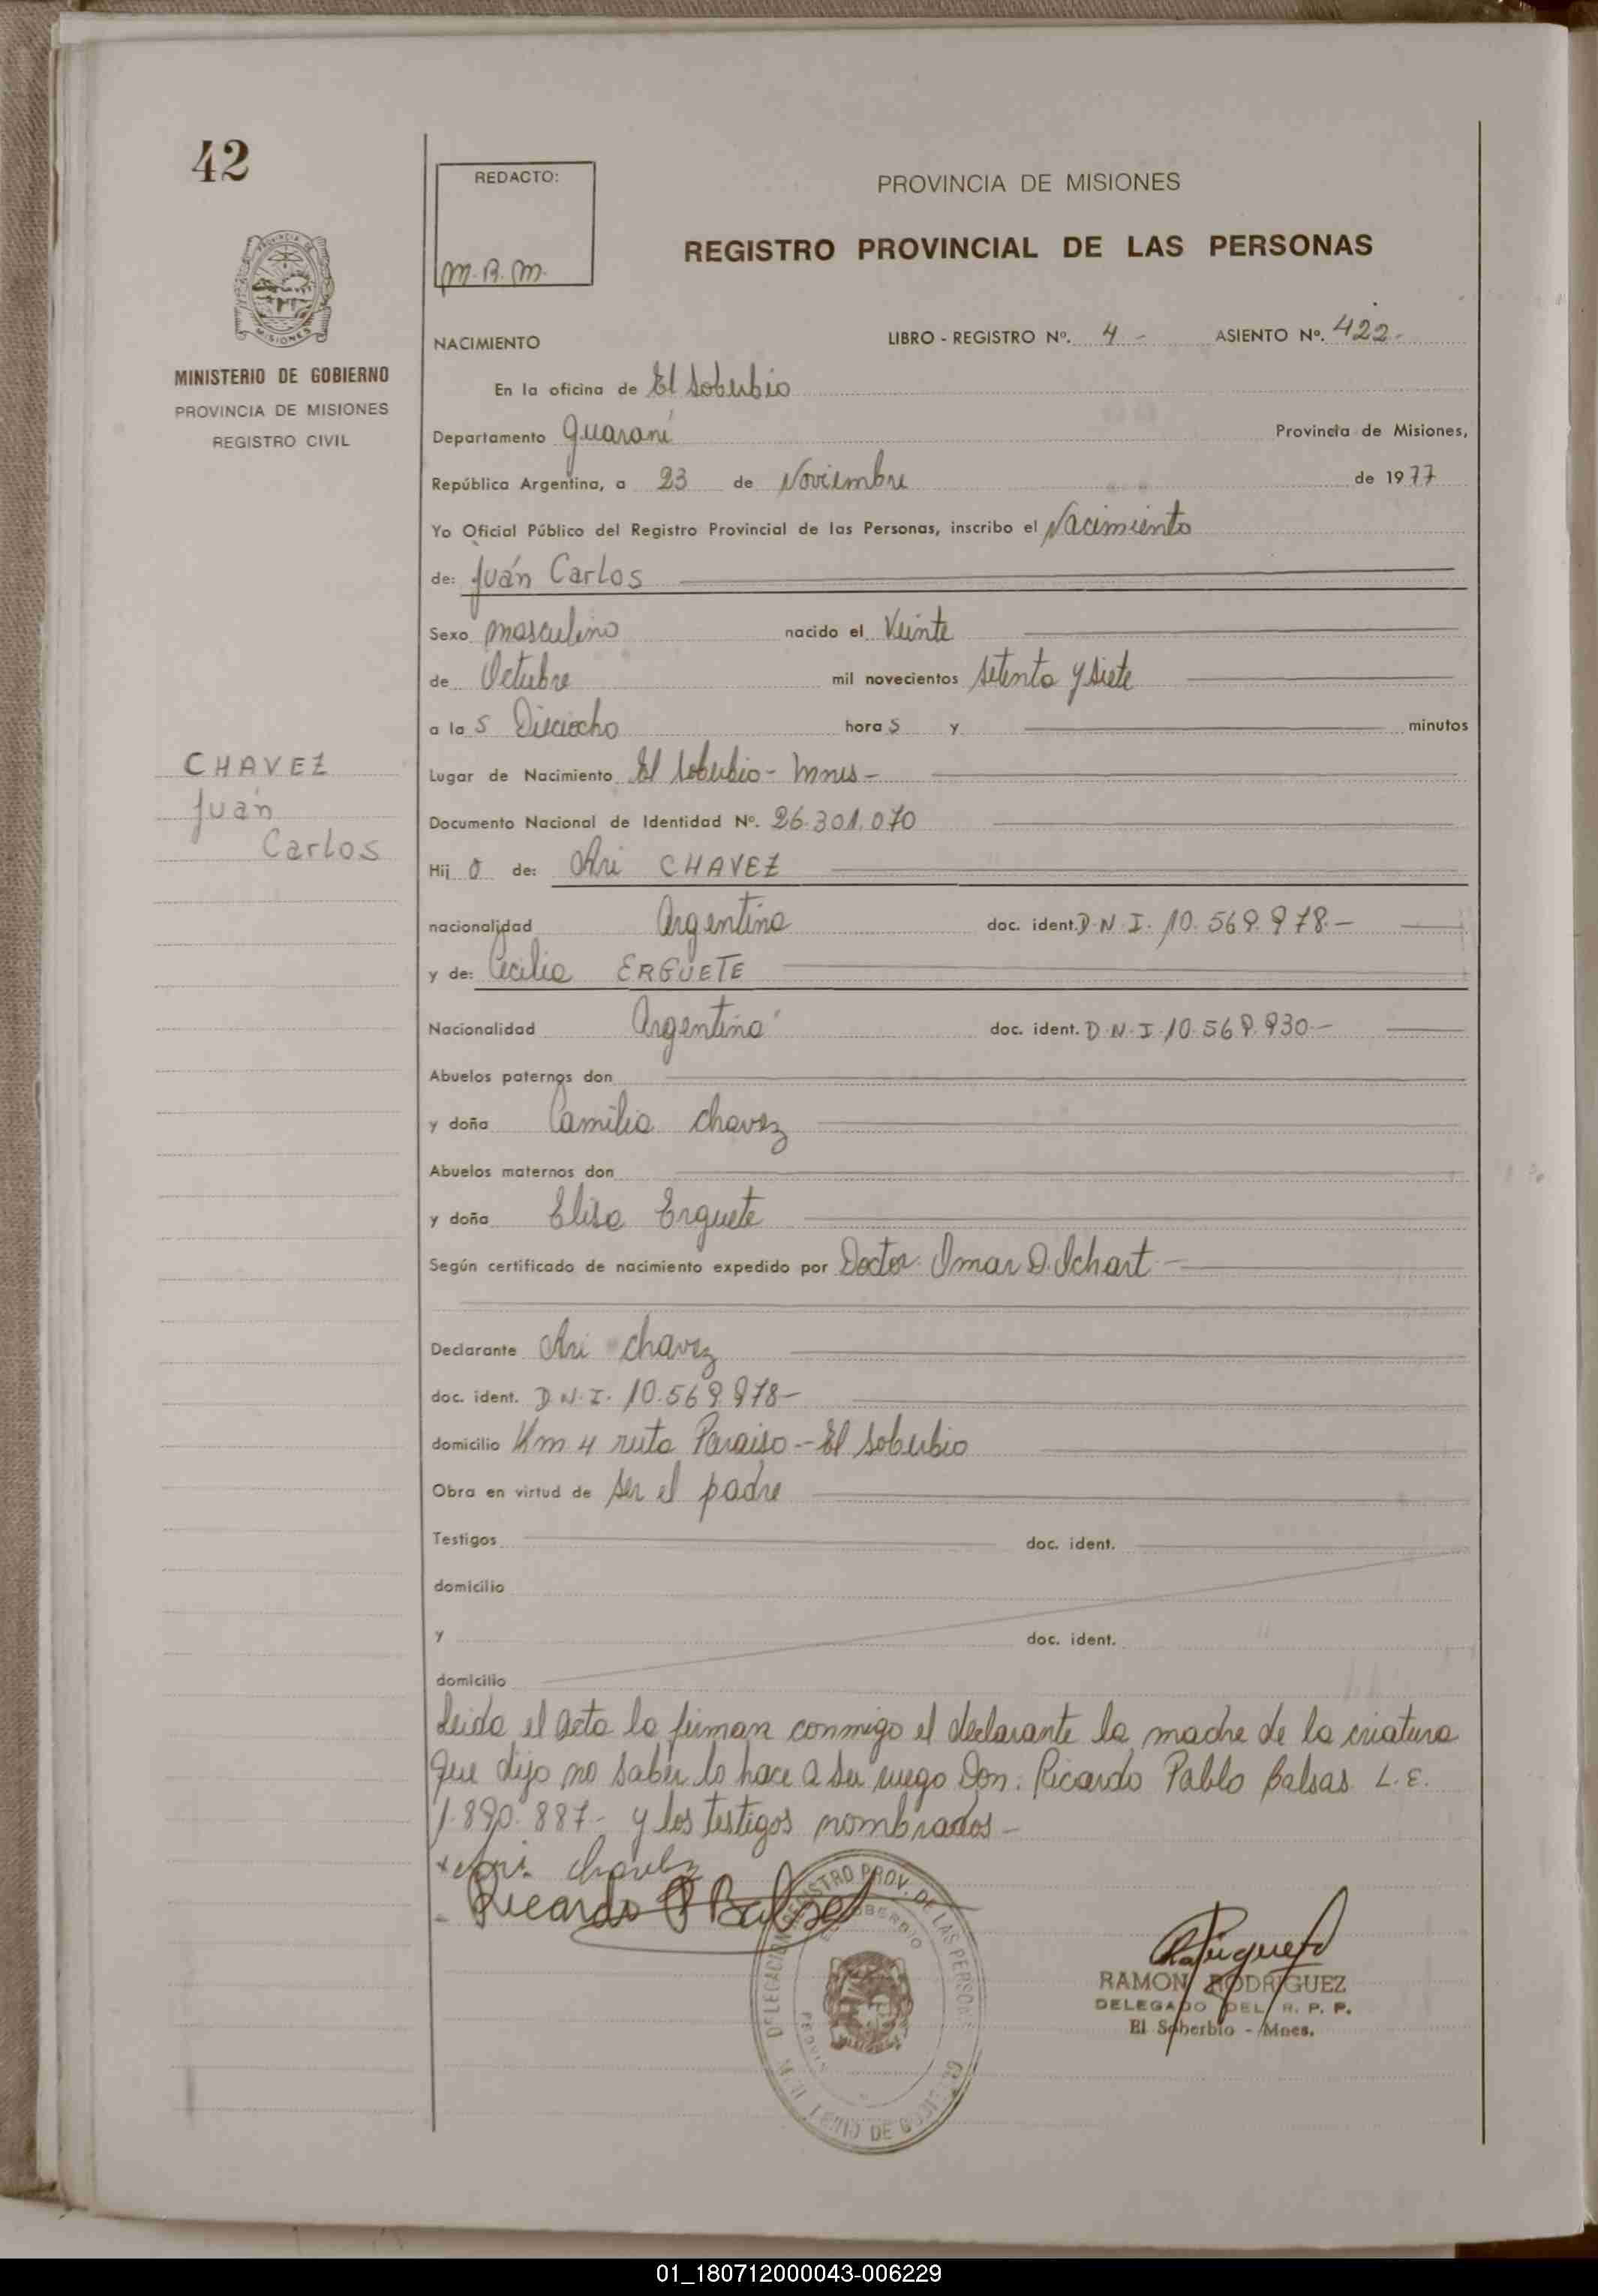 42
REDACTO:
M.B.M.
PROVINCIA DE MISIONES
REGISTRO PROVINCIAL DE LAS PERSONAS
MINISTERIO DE GOBIERNO
PROVINCIA DE MISIONES
REGISTRO CIVIL
NACIMIENTO LIBRO - REGISTRO Nº. 4 - ASIENTO Nº. 422.-
En la oficina de El Soberbio
Departamento Guaraní Provincia de Misiones,
República Argentina, a 23 de Noviembre de 1977
Yo Oficial Público del Registro Provincial de las Personas, inscribo el Nacimiento
de: Juán Carlos
Sexo masculino nacido el Veinte
de Octubre mil novecientos setenta y siete
a la s Dieciocho hora s y minutos
CHAVEZ
Juán
Carlos
Lugar de Nacimiento El Soberbio - Mnes -
Documento Nacional de Identidad Nº. 26.301.070
Hij o de: Ari CHAVEZ
nacionalidad Argentina doc. ident. D.N.I. 10.569.978.-
y de: Cecilia ERGUETE
Nacionalidad Argentina doc. ident. D.N.I. 10.569.930.-
Abuelos paternos don
y doña Camilia Chavez
Abuelos maternos don
y doña Elisa Erguete
Según certificado de nacimiento expedido por Doctor Omar D. Ichart -
Declarante Ari Chavez
doc. ident. D.N.I. 10.569.978-
domicilio Km 4 ruta Paraiso - El Soberbio
Obra en virtud de ser el padre
Testigos doc. ident.
domicilio
y doc. ident.
domicilio
Leida el acta la firman conmigo el declarante la madre de la criatura
que dijo no saber lo hace a su ruego Don: Ricardo Pablo Balsas L.E.
1.890.887- y los testigos nombrados -
Ari Chavez
Ricardo P Balsa
DELEGACION REGISTRO PROV. DE LAS PERSONAS
EL SOBERBIO
RAMON RODRIGUEZ
DELEGADO DEL R. P. P.
El Soberbio - Mnes.
01_180712000043-006229